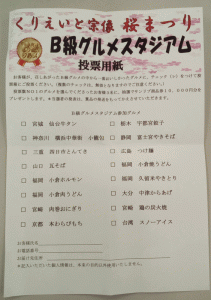 くりえいと宗像 桜まつり
B級グルメスタジアム
投票用紙
B級グルメスタジアム参加グルメ
□ 宮城 仙台牛タン
□ 栃木 宇都宮餃子
□ 神奈川 横浜中華街 小籠包
□ 静岡 富士宮やきそば
□ 三重 四日市とんてき
□ 広島 つけ麺
□ 山口 瓦そば
□ 福岡 小倉焼うどん
□ 福岡 小倉ホルモン
□ 福岡 久留米やきとり
□ 福岡 小倉肉うどん
□ 大分 中津からあげ
□ 宮崎 肉巻おにぎり
□ 宮崎 鶏の炭火焼
□ 京都 本わらびもち
□ 台湾 スノーアイス
お客様氏名
お電話番号
お客様ご住所